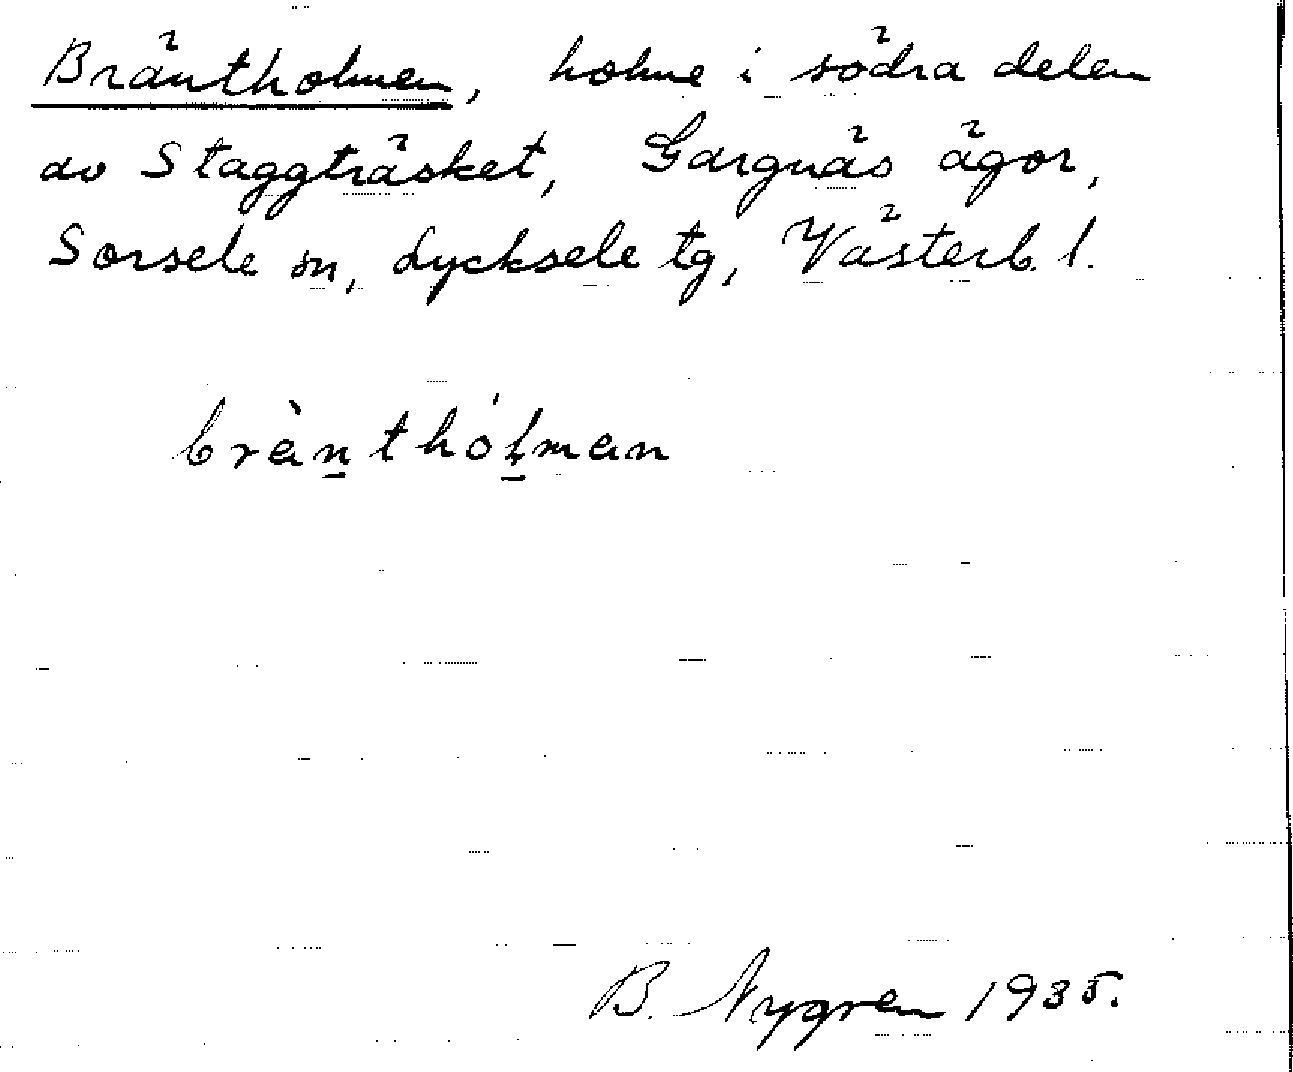 Bräntholmen, holme i södra delen
av Staggträsket, Gargnäs ägor,
Sorsele sn, Lycksele tg, Västerb. l.
brànthólman
B. Nygren 1935.